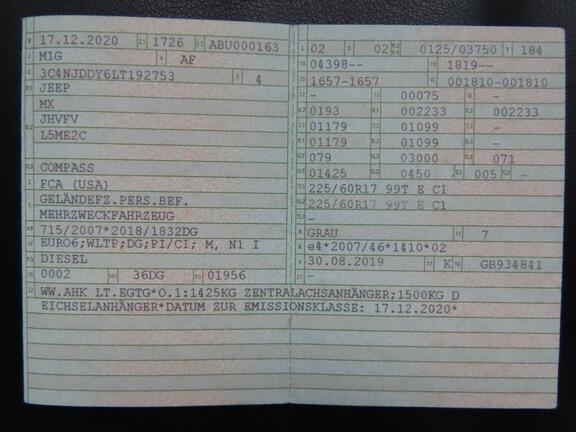 17.12.2020 1726 ABU000163
M1G AF
3C4NJDDY6LT192753 4
JEEP
MX
JHVFV
L5ME2C
COMPASS
FCA (USA)
GELÄNDEFZ.PERS.BEF.
MEHRZWECKFAHRZEUG
715/2007*2018/1832DG
EURO6;WLTP;DG;PI/CI; M, N1 I
DIESEL
0002 36DG 01956
02 02 0125/03750 184
04398-- 1819--
1657-1657 001810-001810
- 00075 -
0193 002233 002233
01179 01099 -
01179 01099 -
079 03000 071
01425 0450 005 -
225/60R17 99T E C1
225/60R17 99T E C1
-
GRAU 7
e4*2007/46*1410*02
30.08.2019 K GB934841
-
WW.AHK LT.EGTG*O.1:1425KG ZENTRALACHSANHÄNGER;1500KG D
EICHSELANHÄNGER*DATUM ZUR EMISSIONSKLASSE: 17.12.2020*